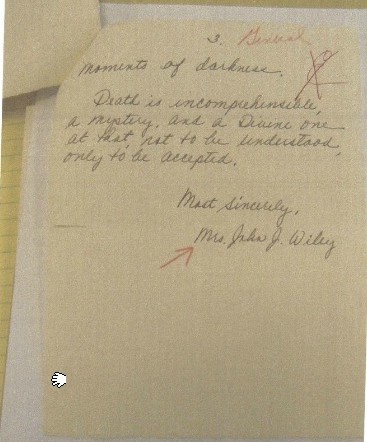 3. General
moments of darkness.
Death is incomprehensible,
a mystery, and a Divine one
at that not to be understood,
only to be accepted.
Most Sincerely,
Mrs. John J. Wiley